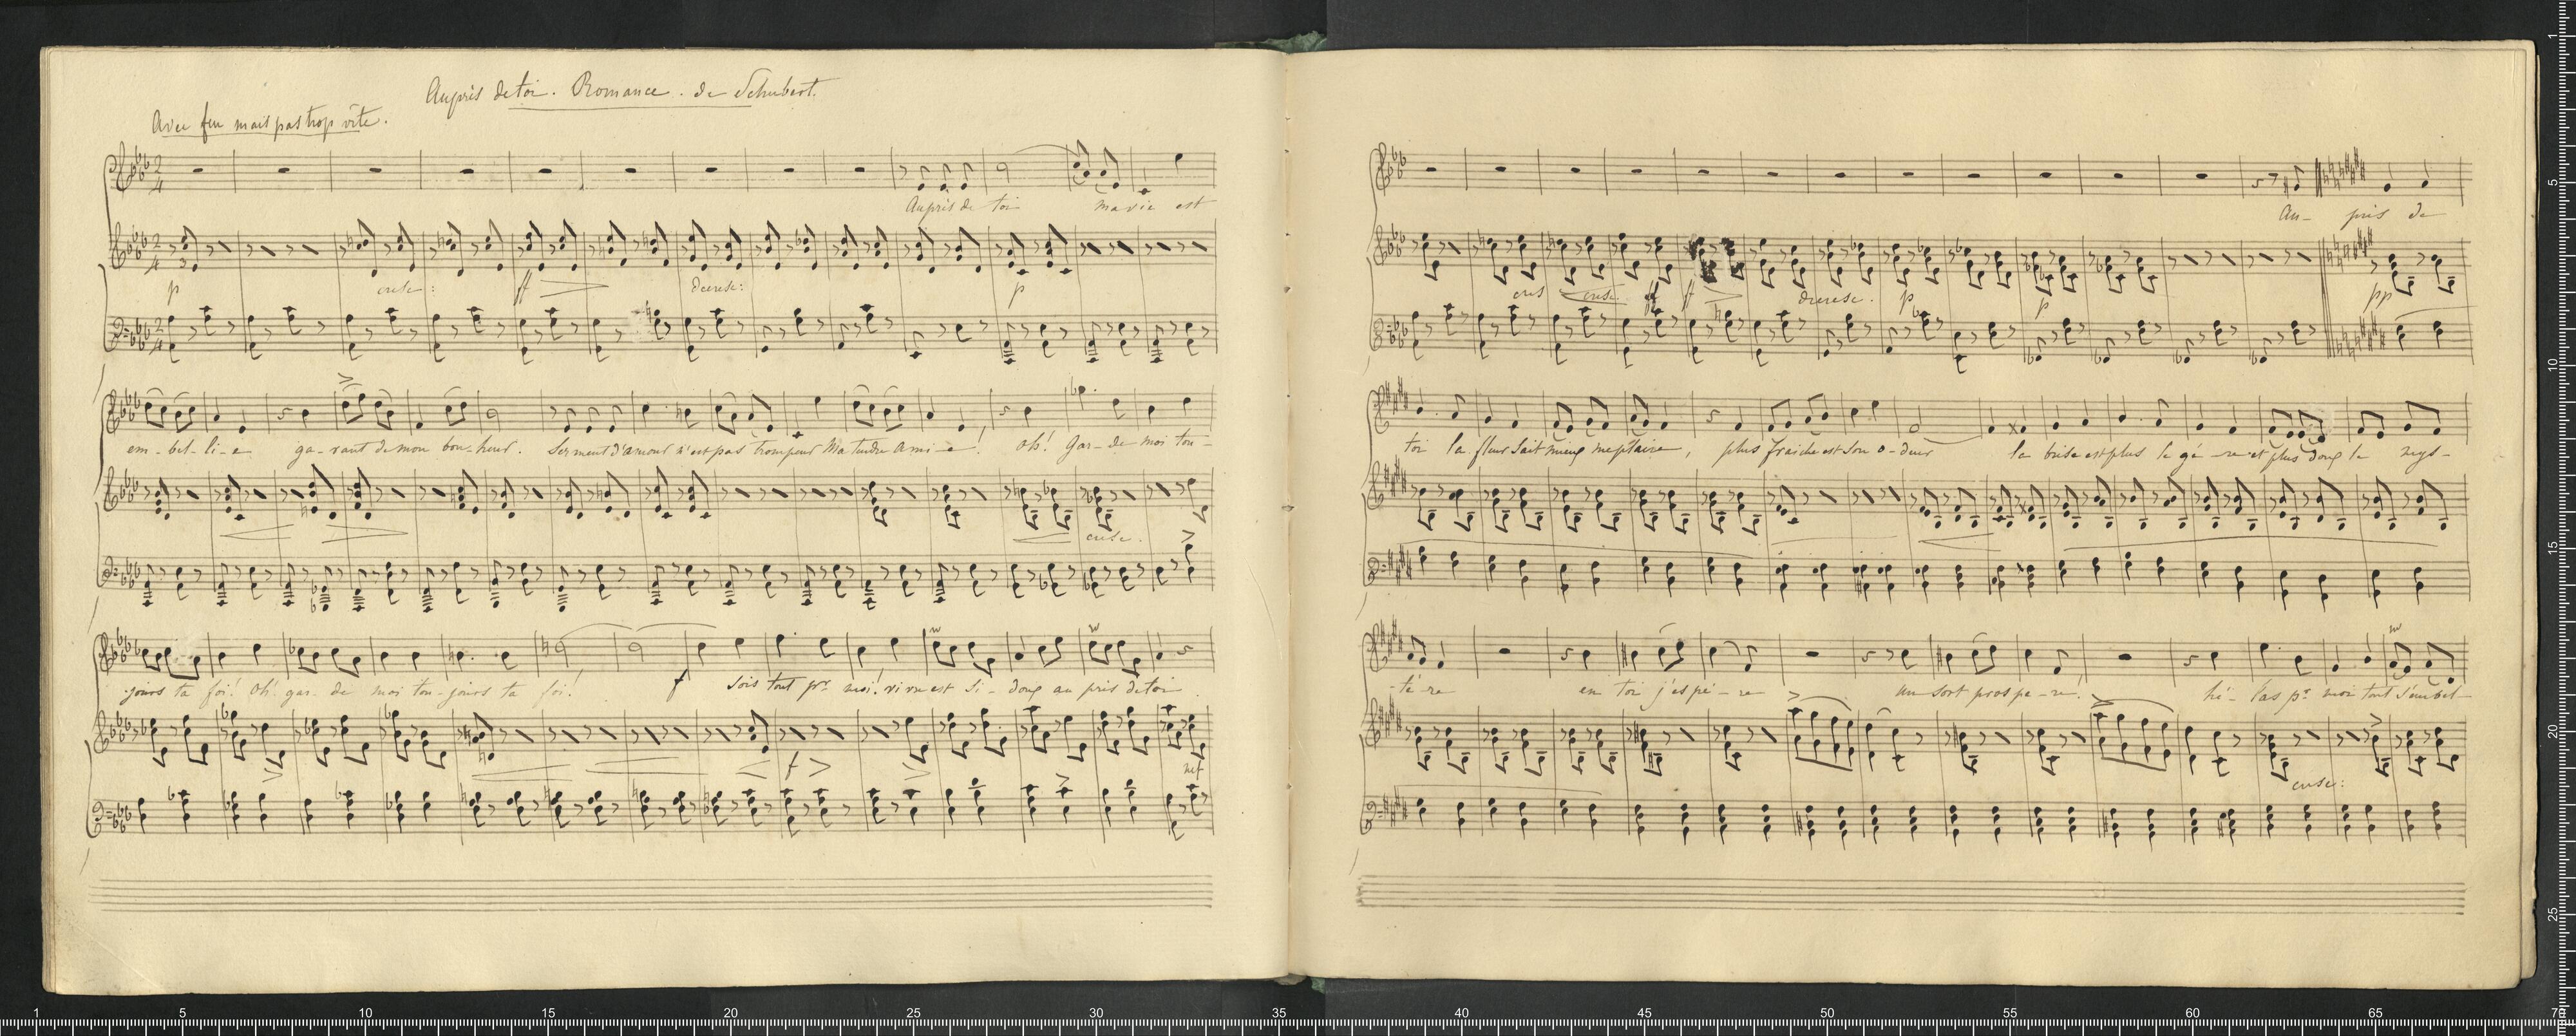 Auprès de toi. Romance. de Schubert.
Avec feu mais pas trop vîte.
2/4
Auprès de toi ma vie est
2/4
p cresc: ff decresc: p
2/4
em-bel-li-e ga-rant de mon bon-heur. Serment d'amour n'est pas trompeur Ma tendre ami-e! oh! Gar-de moi tou-
cresc.
-jours ta foi! Oh! gar-de moi tou-jours ta foi! f sois tout pr moi! vivre est si-doux au près de toi
f
Au- près de
cres cresc. ff ff decresc. p p pp
toi la fleur sait mieux me plaire, plus fraiche est son o-deur la brise est plus le gè-re et plus doux le mys-
-tè-re en toi j'espè-re un sort prospe-re! hé-las pr moi tout s'embel-
cresc:
1 5 10 15 20 25 30 35 40 45 50 55 60 65 70
1
5
10
15
20
25